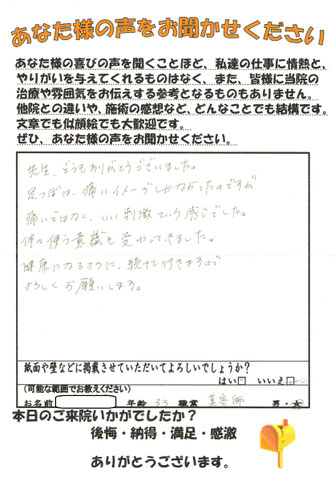 あなた様の声をお聞かせください
あなた様の喜びの声を聞くことほど、私達の仕事に情熱と、
やりがいを与えてくれるものはなく、また、皆様に当院の
治療や雰囲気をお伝えする参考となるものもありません。
他院との違いや、施術の感想など、どんなことでも結構です。
文章でも似顔絵でも大歓迎です。
ぜひ、あなた様の声をお聞かせください。
先生、どうもありがとうございました。
足つぼは、痛いイメージしかなかったのですが
痛いではなく、いい刺激という感じでした。
体の使う意識も変わってきました。
健康になるように、続けて行きますので
よろしくお願いします。
紙面や壁などに掲載させていただいてよろしいでしょうか?
はい□ いいえ
(可能な範囲でお教えください)
お名前 年齢 33 職業 美容師 男・女
本日のご来院いかがでしたか?
後悔・納得・満足・感激
ありがとうございます。